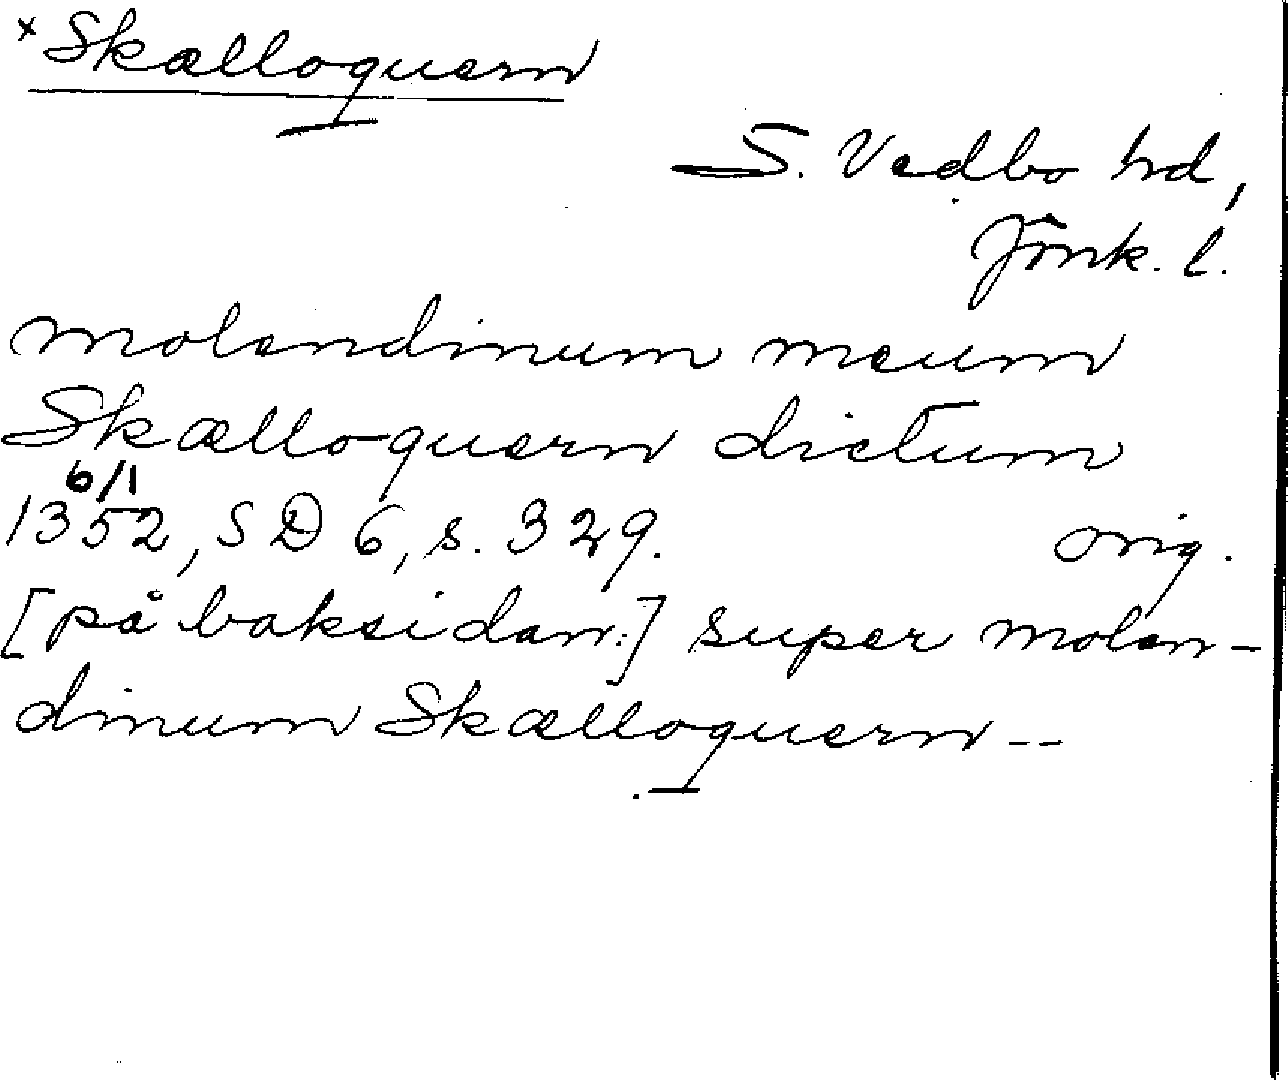 ×Skælloquern
S. Vedbo hd,
Jönk. l.
molendinum meum
Skælloquern dictum
6/1
1352, SD 6, s. 329. orig.
[på baksidan:] super molen-
dinum Skælloquern --